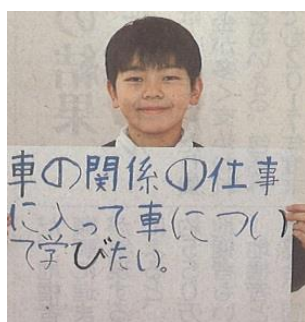 車の関係の仕事
に入って車につい
て学びたい。